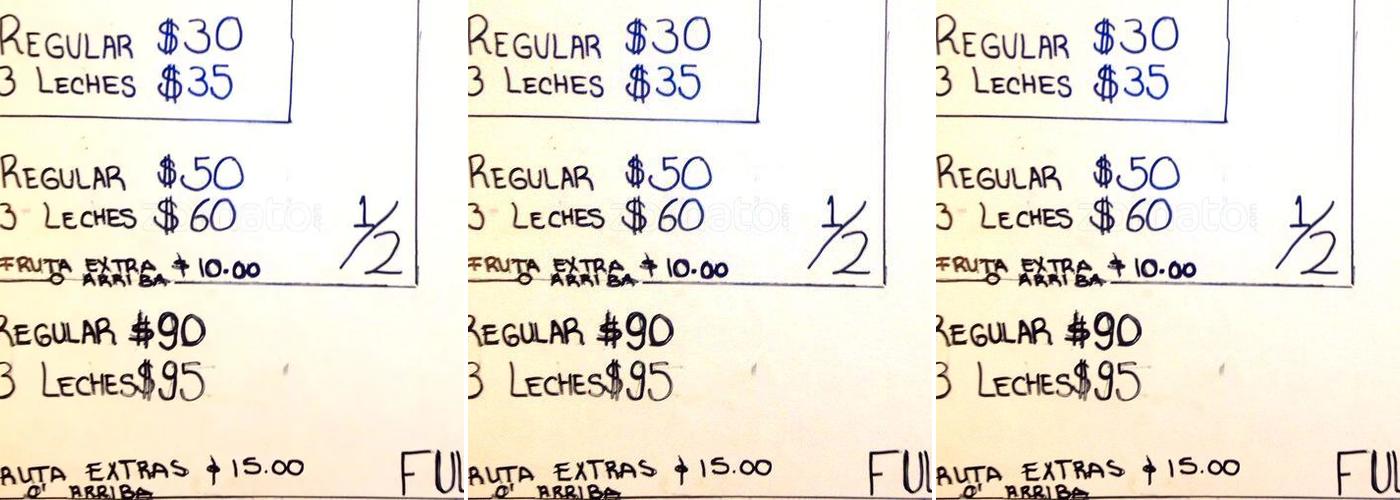 REGULAR $30
3 LECHES $35
REGULAR $50
3 LECHES $60
1/2
FRUTA EXTRA $10.00
O ARRIBA
REGULAR $90
3 LECHES $95
RUTA EXTRAS $15.00
O' ARRIBA
FUL
REGULAR $30
3 LECHES $35
REGULAR $50
3 LECHES $60
1/2
FRUTA EXTRA $10.00
O ARRIBA
REGULAR $90
3 LECHES $95
RUTA EXTRAS $15.00
O' ARRIBA
FUL
REGULAR $30
3 LECHES $35
REGULAR $50
3 LECHES $60
1/2
FRUTA EXTRA $10.00
O ARRIBA
REGULAR $90
3 LECHES $95
RUTA EXTRAS $15.00
O' ARRIBA
FUL